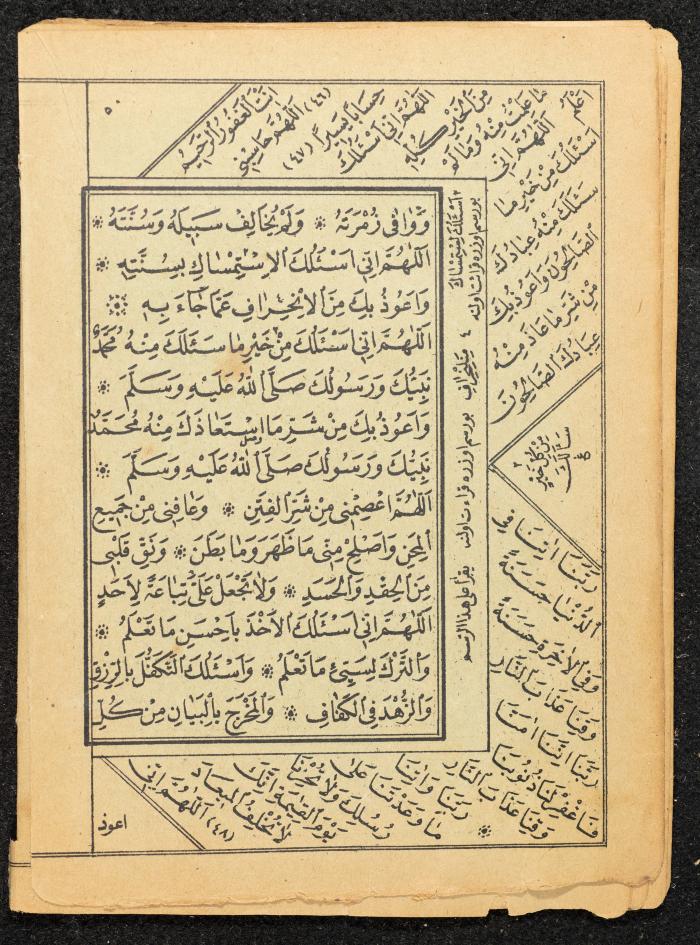 وَوَافٰى زُمْرَتَهُ ❊ وَلَمْ يُخَالِفْ سَبِيلَهُ وَسُنَّتَهُ ❊
اَللّٰهُمَّ اِنِّى اَسْئَلُكَ الْاِسْتِمْسَاكَ بِسُنَّتِهِ ❊
وَاَعُوذُ بِكَ مِنَ الْاِنْحِرَافِ عَمَّا جَاءَ بِهِ ❊
اَللّٰهُمَّ اِنِّى اَسْئَلُكَ مِنْ خَيْرِ مَا سَئَلَكَ مِنْهُ مُحَمَّدٌ
نَبِيُّكَ وَرَسُولُكَ صَلَّى اللّٰهُ عَلَيْهِ وَسَلَّمَ ❊
وَاَعُوذُ بِكَ مِنْ شَرِّ مَا اسْتَعَاذَكَ مِنْهُ مُحَمَّدٌ
نَبِيُّكَ وَرَسُولُكَ صَلَّى اللّٰهُ عَلَيْهِ وَسَلَّمَ ❊
اَللّٰهُمَّ اعْصِمْنِى مِنْ شَرِّ الْفِتَنِ ❊ وَعَافِنِى مِنْ جَمِيعِ
الْمِحَنِ وَاَصْلِحْ مِنِّى مَا ظَهَرَ وَمَا بَطَنَ ❊ وَنَقِّ قَلْبِى
مِنَ الْحِقْدِ وَالْحَسَدِ ❊ وَلَا تَجْعَلْ عَلَىَّ تِبَاعَةً لِاَحَدٍ
اَللّٰهُمَّ اِنِّى اَسْئَلُكَ الْاَخْذَ بِاَحْسَنِ مَا تَعْلَمُ ❊
وَالتَّرْكَ لِسَيِّئِ مَا تَعْلَمُ ❊ وَاَسْئَلُكَ التَّكَفُّلَ بِالرِّزْقِ
وَالزُّهْدَ فِى الْكَفَافِ ❊ وَالْمَخْرَجَ بِالْبَيَانِ مِنْ كُلِّ
٢ اَسْئَلُكَ لِسْتِمْسَاكَ
بورسم اوزره قرائت اولنه
٤
بورسم اوزره قراءت اولنه
يقرأ على هذا الرسم
٥٠
اَنْتَ الْغَفُورُ الرَّحِيمُ
(٤٦) اَللّٰهُمَّ حَاسِبْنِى
حِسَابًا يَسِيرًا (٤٧)
اَللّٰهُمَّ اِنِّى اَسْئَلُكَ
مِنَ الْخَيْرِ كُلِّهِ
مَا عَلِمْتُ مِنْهُ وَمَا لَمْ
اَعْلَمْ اَللّٰهُمَّ اِنِّى
اَسْئَلُكَ مِنْ خَيْرِ مَا
سَئَلَكَ مِنْهُ عِبَادُكَ
الصَّالِحُونَ وَاَعُوذُ بِكَ
مِنْ شَرِّ مَا عَاذَ مِنْهُ
عِبَادُكَ الصَّالِحُونَ
رَبَّنَا اٰتِنَا فِى
الدُّنْيَا حَسَنَةً
وَفِى الْاٰخِرَةِ حَسَنَةً
وَقِنَا عَذَابَ النَّارِ
رَبَّنَا اِنَّنَا اٰمَنَّا
فَاغْفِرْ لَنَا ذُنُوبَنَا
وَقِنَا عَذَابَ النَّارِ ❊
رَبَّنَا وَاٰتِنَا
مَا وَعَدْتَنَا عَلٰى
رُسُلِكَ وَلَا تُخْزِنَا
يَوْمَ الْقِيٰمَةِ اِنَّكَ
لَا تُخْلِفُ الْمِيعَادَ
(٤٨) اَللّٰهُمَّ اِنِّى
اعوذ